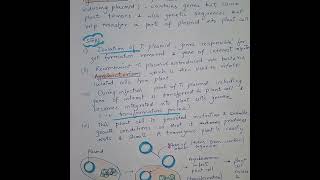 inducing plasmid, contains genes but some
plant tumors & also genetic sequences that
help transfer a part of plasmid into plant cell
STEPS
i) Isolation of Ti plasmid, genes responsible for
formation removed & gene of interest
ii) Recombinant Ti plasmid introduced into bacteria
Agrobacterium, which is then used to infect
isolated cells from plant
iii) During infection part of Ti plasmid including
gene of interest is transferred to plant cell &
becomes integrated into plant cell's genome
transformation process
iv) This plant cell is provided nutrition & suitable
growth conditions so that it
roots & shoots. A transgenic plant is ready
plasmid
Agrobacterium
plant cell